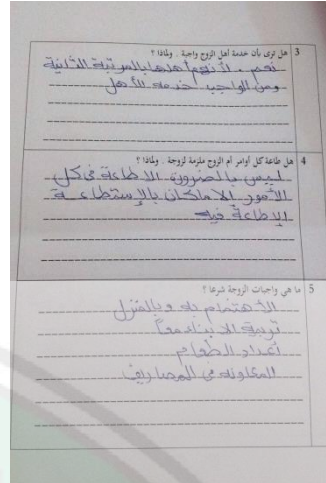 3 هل ترى بأن خدمة أهل الزوج واجبة . ولماذا ؟
نعم . لأنهم أهلها بالمرتبة الثانية
ومن الواجب خدمة الأهل
4 هل طاعة كل أوامر أم الزوج ملزمة لزوجة . ولماذا ؟
ليس بالضرورة الاطاعة في كل
الأمور الا ماكان بالإستطاعة
الإطاعة فيه
5 ما هي واجبات الزوجة شرعا ؟
الأهتمام به وبالمنزل
تربية الابناء معاً
أعداد الطعام
المعاونه في المصاريف